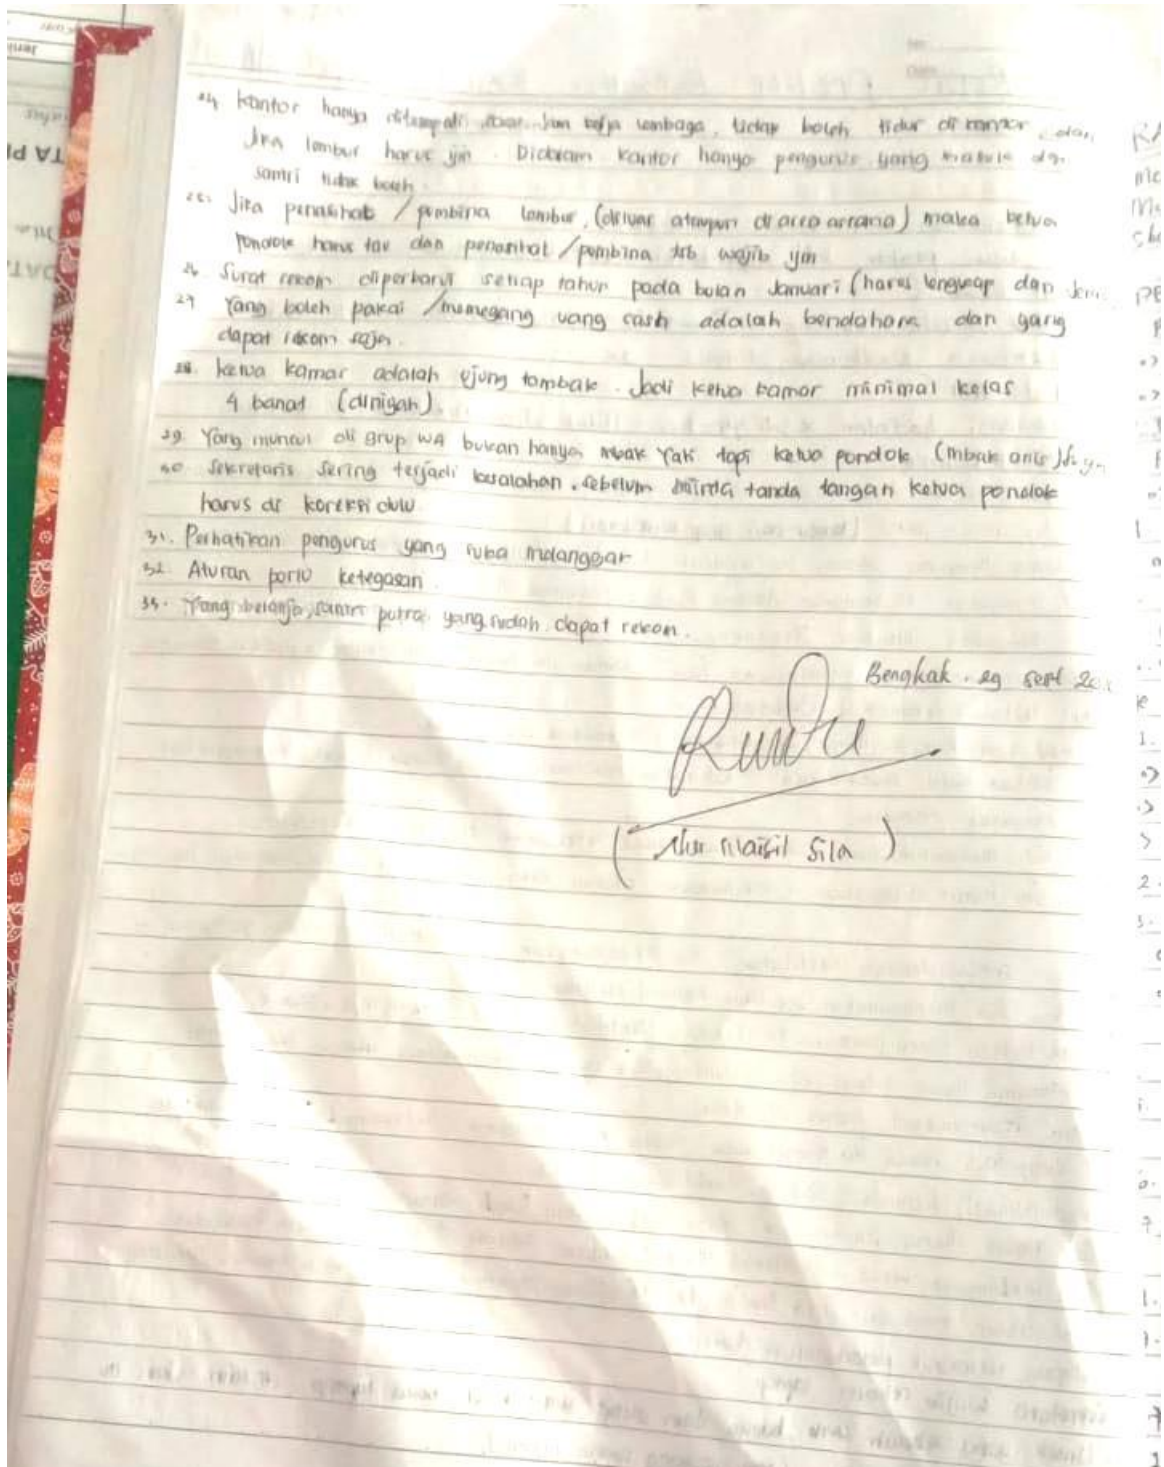 24 Kantor hanya ditempati jam kerja lembaga, tidak boleh tidur di kantor, dan
Jika lembur harus ijin. Didalam kantor hanya pengurus yang
santri tidak boleh.
25. Jika penasihat / pembina lembur, (diluar ataupun di area asrama) maka ketua
Pondok harus tau dan penasihat / pembina tsb wajib ijin
26 Surat rekom diperbarui setiap tahun pada bulan Januari (harus lengkap dan
27 Yang boleh pakai / memegang uang cash adalah bendahara dan yang
dapat rekom saja.
28. ketua kamar adalah ujung tombak. Jadi ketua kamar minimal kelas
4 banat (diniyah).
29. Yang muncul di grup WA bukan hanya mbak Yati tapi ketua pondok (mbak anis)
30 Sekretaris sering terjadi kesalahan. sebelum tanda tangan ketua pondok
harus di koreksi dulu
31. Perhatikan pengurus yang suka melanggar
32. Aturan perlu ketegasan.
33. Yang belanja, santri putra yang sudah dapat rekom.
Bengkak. 29 sept
( Sila )